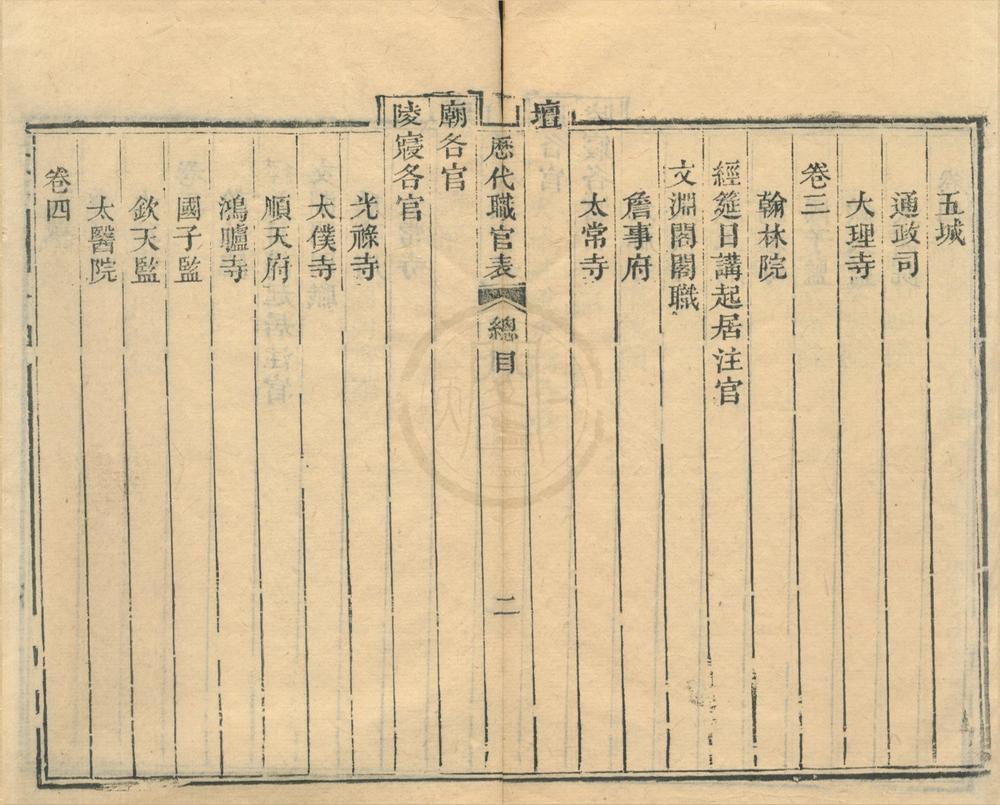 五城
通政司
大理寺
卷三
翰林院
經筵日講起居注官
文淵閣閣職
詹事府
太常寺
壇
歷代職官表 總目 二
廟各官
陵寢各官
光祿寺
太僕寺
順天府
鴻臚寺
國子監
欽天監
太醫院
卷四